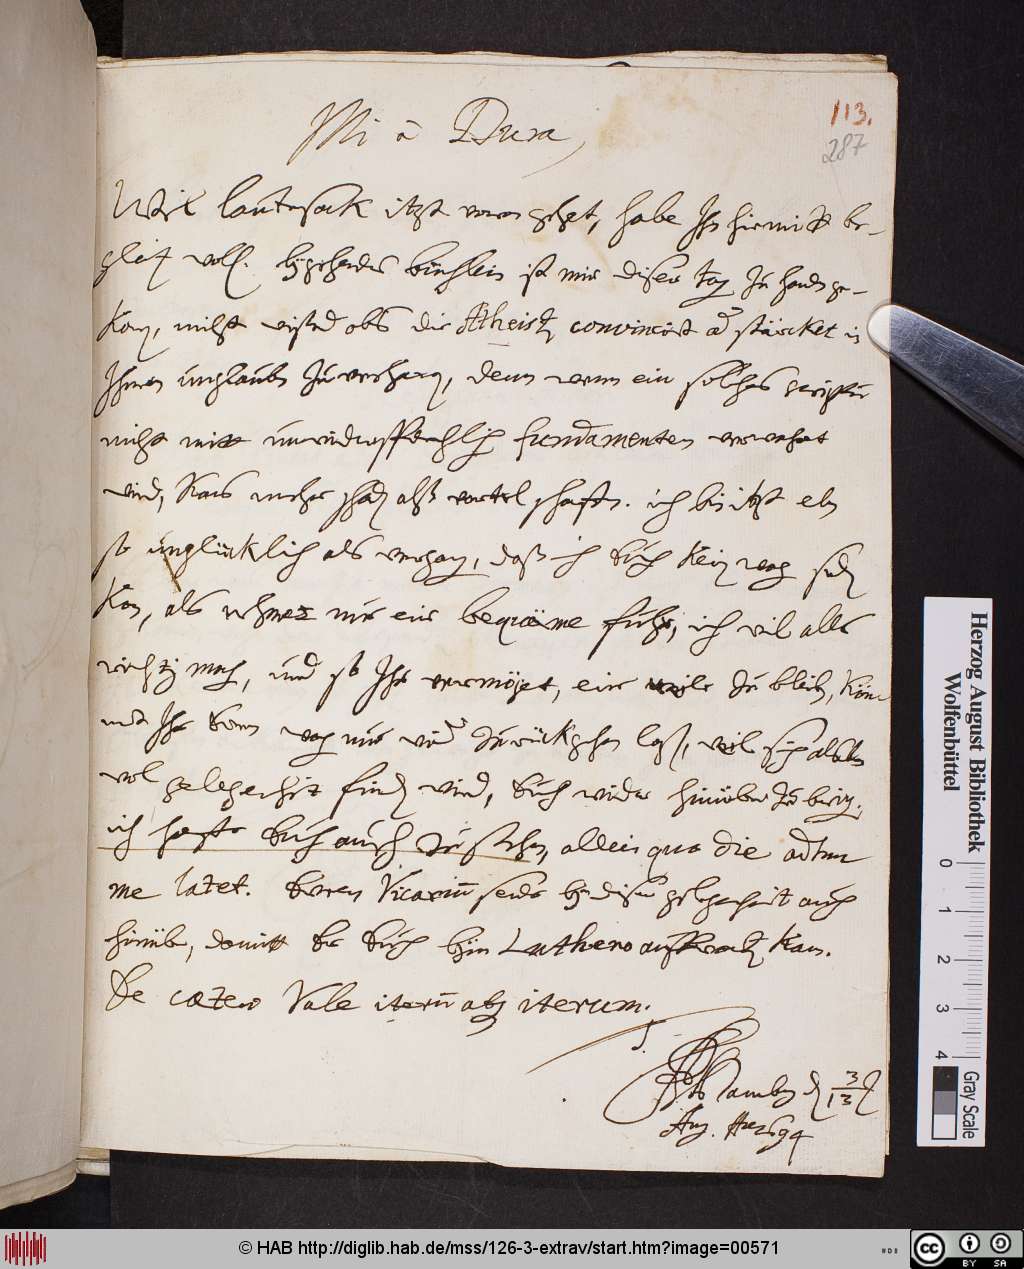 113.
287
Mi â Dura,
Weil lautensak itzt voran gehet, habe Ihn hiermitt be-
gleit woll. bÿgehendes büchlein ist mir disen tag zu handen ge-
Kom, nicht wissend obs die Atheist convincirt od stärcket in
Ihrem unglauben zu verharren, denn wenn ein solches scriptum
nicht mitt unwidersprechlich fundamenten verwahrt
wird, Kans mehr schad alß vortel schaffen. ich bin itzt eben
so unglücklich als vergang, daß ich Euch Kein wag send
Kan, als nehmet nur eine beqväme fuhr, ich wil alles
richtig mach, und so Ihr vermöget, eine weile zu bleib, Kön-
net Ihr den wag nur wid zurückgehen laß, weil sich alsden
wol gelegenheit find wird, Euch wieder hinüber zu bring.
ich hoffe Euch auch zu sehen, allein qua die adhuc
me latet. Euren Vicarium sende bÿ diser gelegenheit auch
hinüber, damitt Er Euch beÿm Luthero aufwart Kan.
De cætero Vale iterum atq iterum.
T.
d 3/13
Aug. Ao 1694
Herzog August Bibliothek
Wolfenbüttel
0 1 2 3 4
Gray Scale
© HAB http://diglib.hab.de/mss/126-3-extrav/start.htm?image=00571
cc BY SA